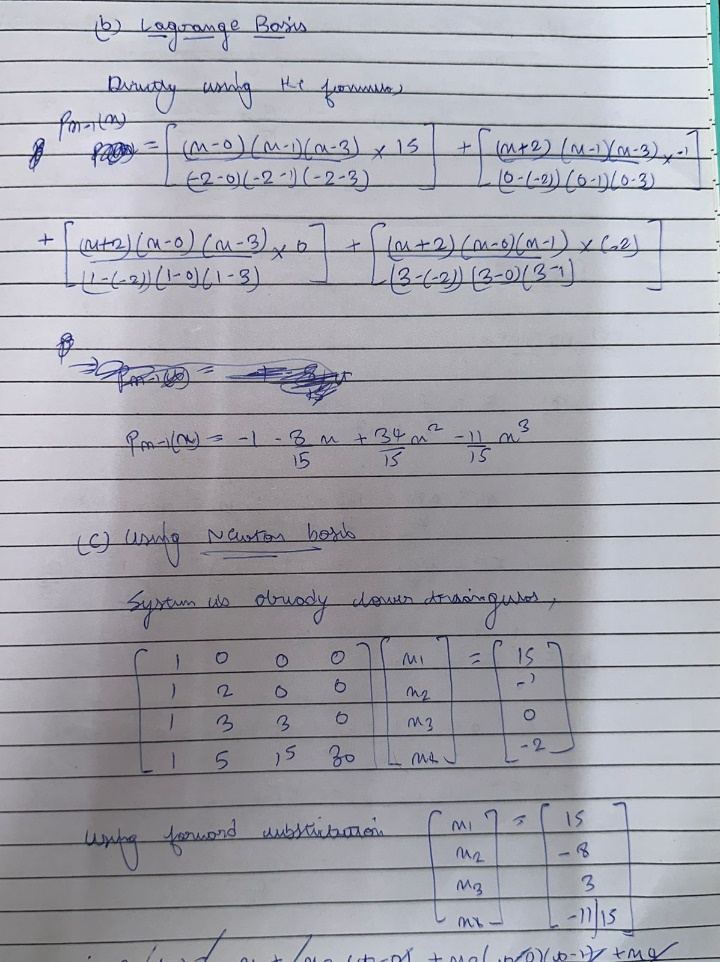 (b) Lagrange Basis
Directly using the formula,
Pn-1(x)
= [ (x-0)(x-1)(x-3) × 15 / (-2-0)(-2-1)(-2-3) ] + [ (x+2)(x-1)(x-3) × -1 / (0-(-2))(0-1)(0-3) ]
+ [ (x+2)(x-0)(x-3) × 0 / (1-(-2))(1-0)(1-3) ] + [ (x+2)(x-0)(x-1) × (-2) / (3-(-2))(3-0)(3-1) ]
Pn-1(x) = -1 - 8/15 x + 34/15 x² - 11/15 x³
(c) Using Newton basis
System is already lower triangular,
[ 1 0 0 0 ] [ x1 ] = [ 15 ]
[ 1 2 0 0 ] [ x2 ] [ -1 ]
[ 1 3 3 0 ] [ x3 ] [ 0 ]
[ 1 5 15 30 ] [ x4 ] [ -2 ]
Using forward substitution [ x1 ] = [ 15 ]
[ x2 ] [ -8 ]
[ x3 ] [ 3 ]
[ x4 ] [ -11/15 ]